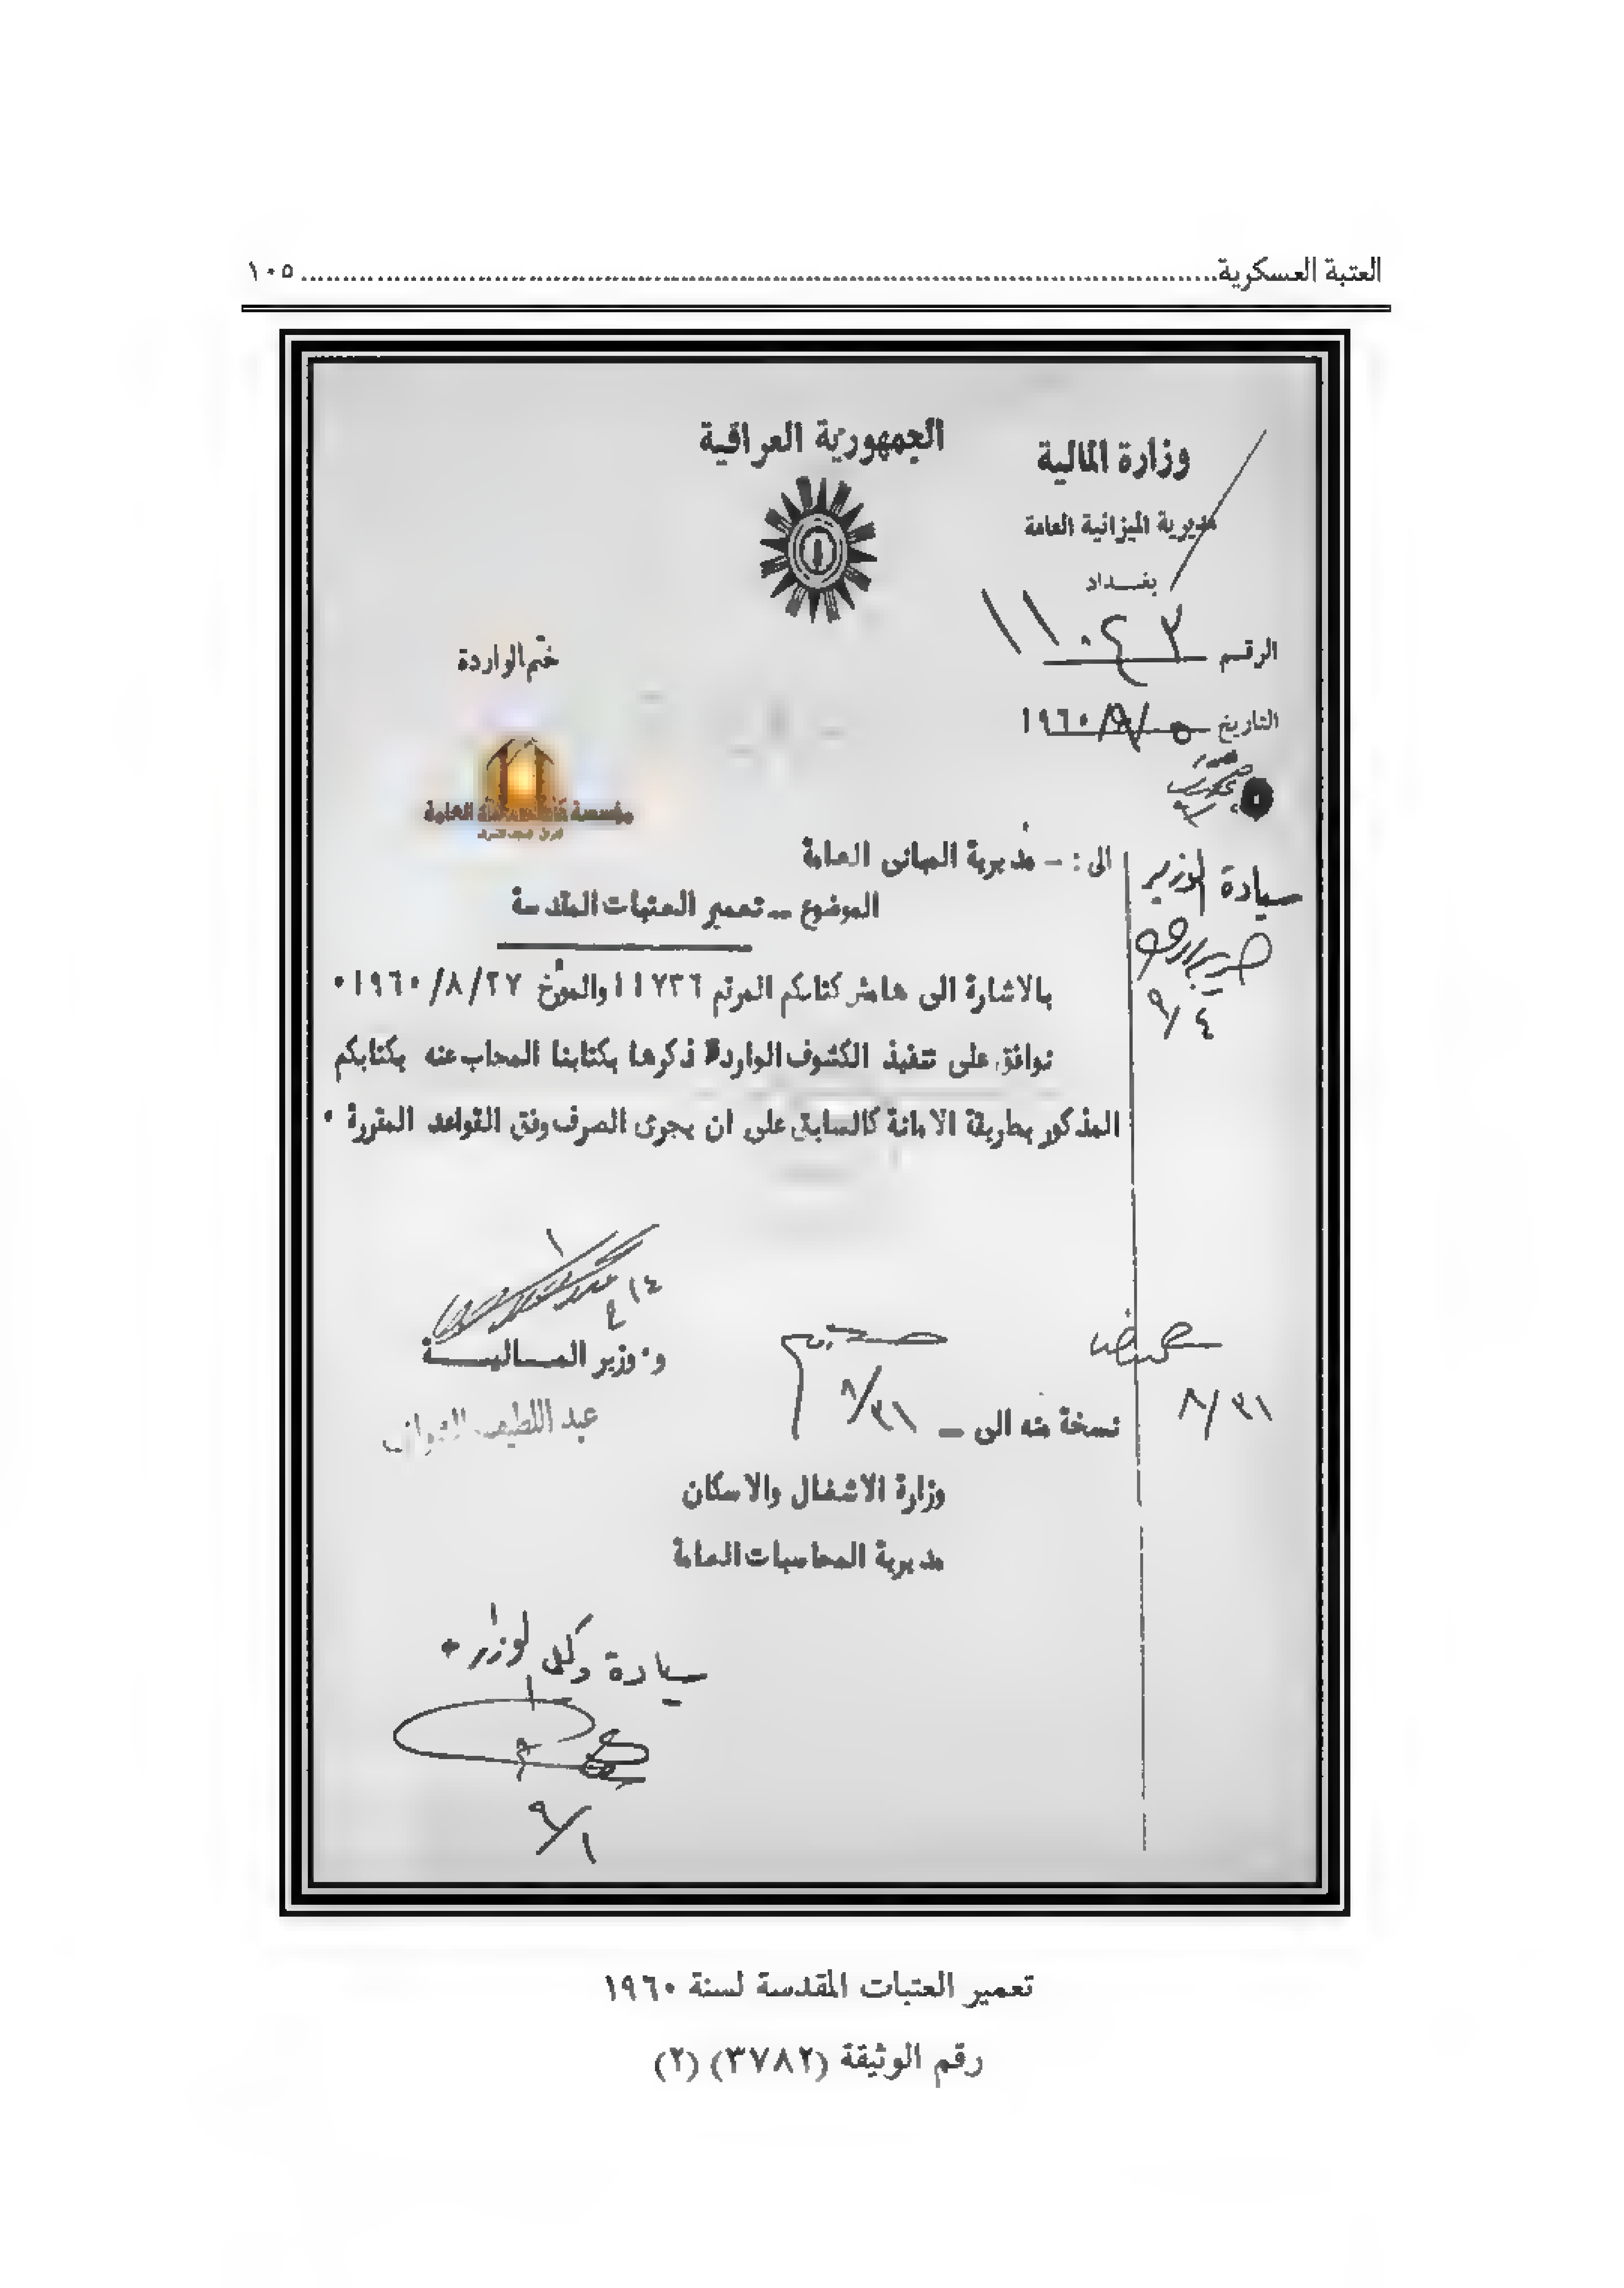 العتبة العسكرية ١٠٥
الجمهورية العراقية
وزارة المالية
مديرية الميزانية العامة
بغداد
الرقم
التاريخ ٥/٩/١٩٦٠
ختم الواردة
مؤسسة كاشف الغطاء العامة
الى : - مديرية المباني العامة
سيادة الوزير
٩/٤
الموضوع - تعمير العتبات المقدسة
بالاشارة الى هامش كتابكم المرقم ١١٧٣٦ والمؤرخ ٢٧/٨/١٩٦٠٠
نوافق على تنفيذ الكشوف الواردة ذكرها بكتابنا المجاب عنه بكتابكم
المذكور بطريقة الامانة كالسابق على ان يجرى الصرف وفق القواعد المقررة ٠
و٠ وزير الماليــة
عبد اللطيف
نسخة منه الى -
٨/٣١
٨/٣١
وزارة الاشغال والاسكان
مديرية المحاسبات العامة
سيادة وكيل الوزير
٩/١
تعمير العتبات المقدسة لسنة ١٩٦٠
رقم الوثيقة (٣٧٨٢) (٢)